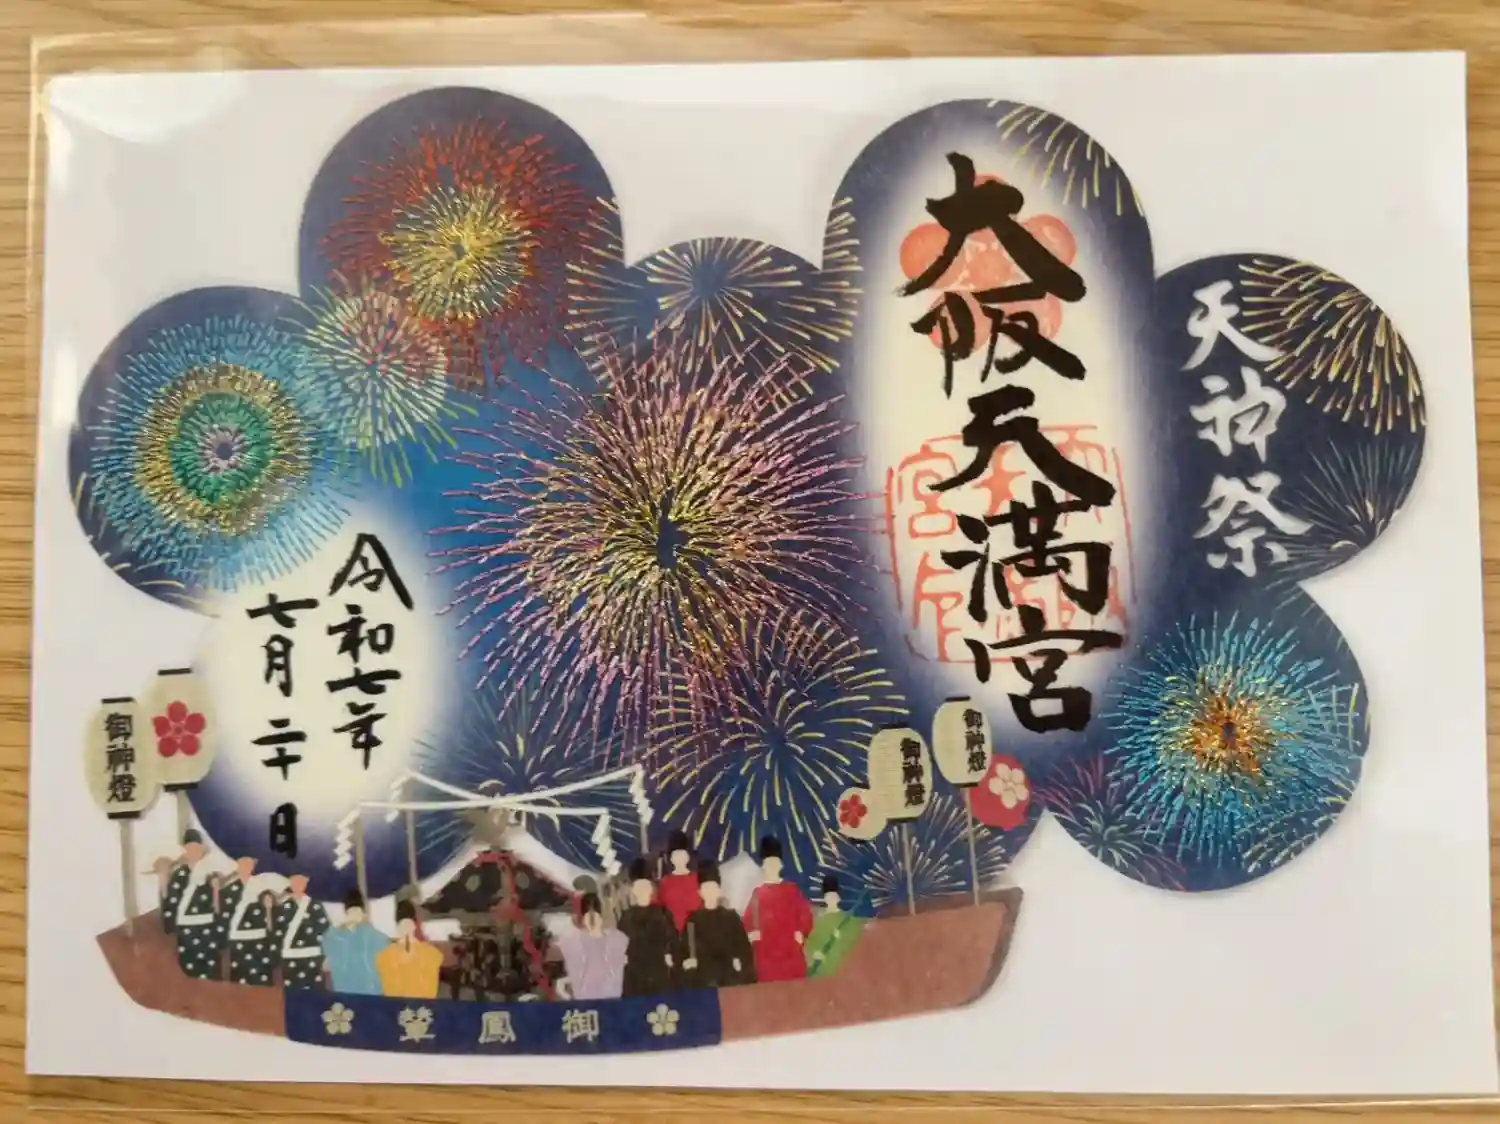 天神祭
大阪天満宮
令和七年
七月二十日
御神燈
御神燈
御神燈
御鳳輦